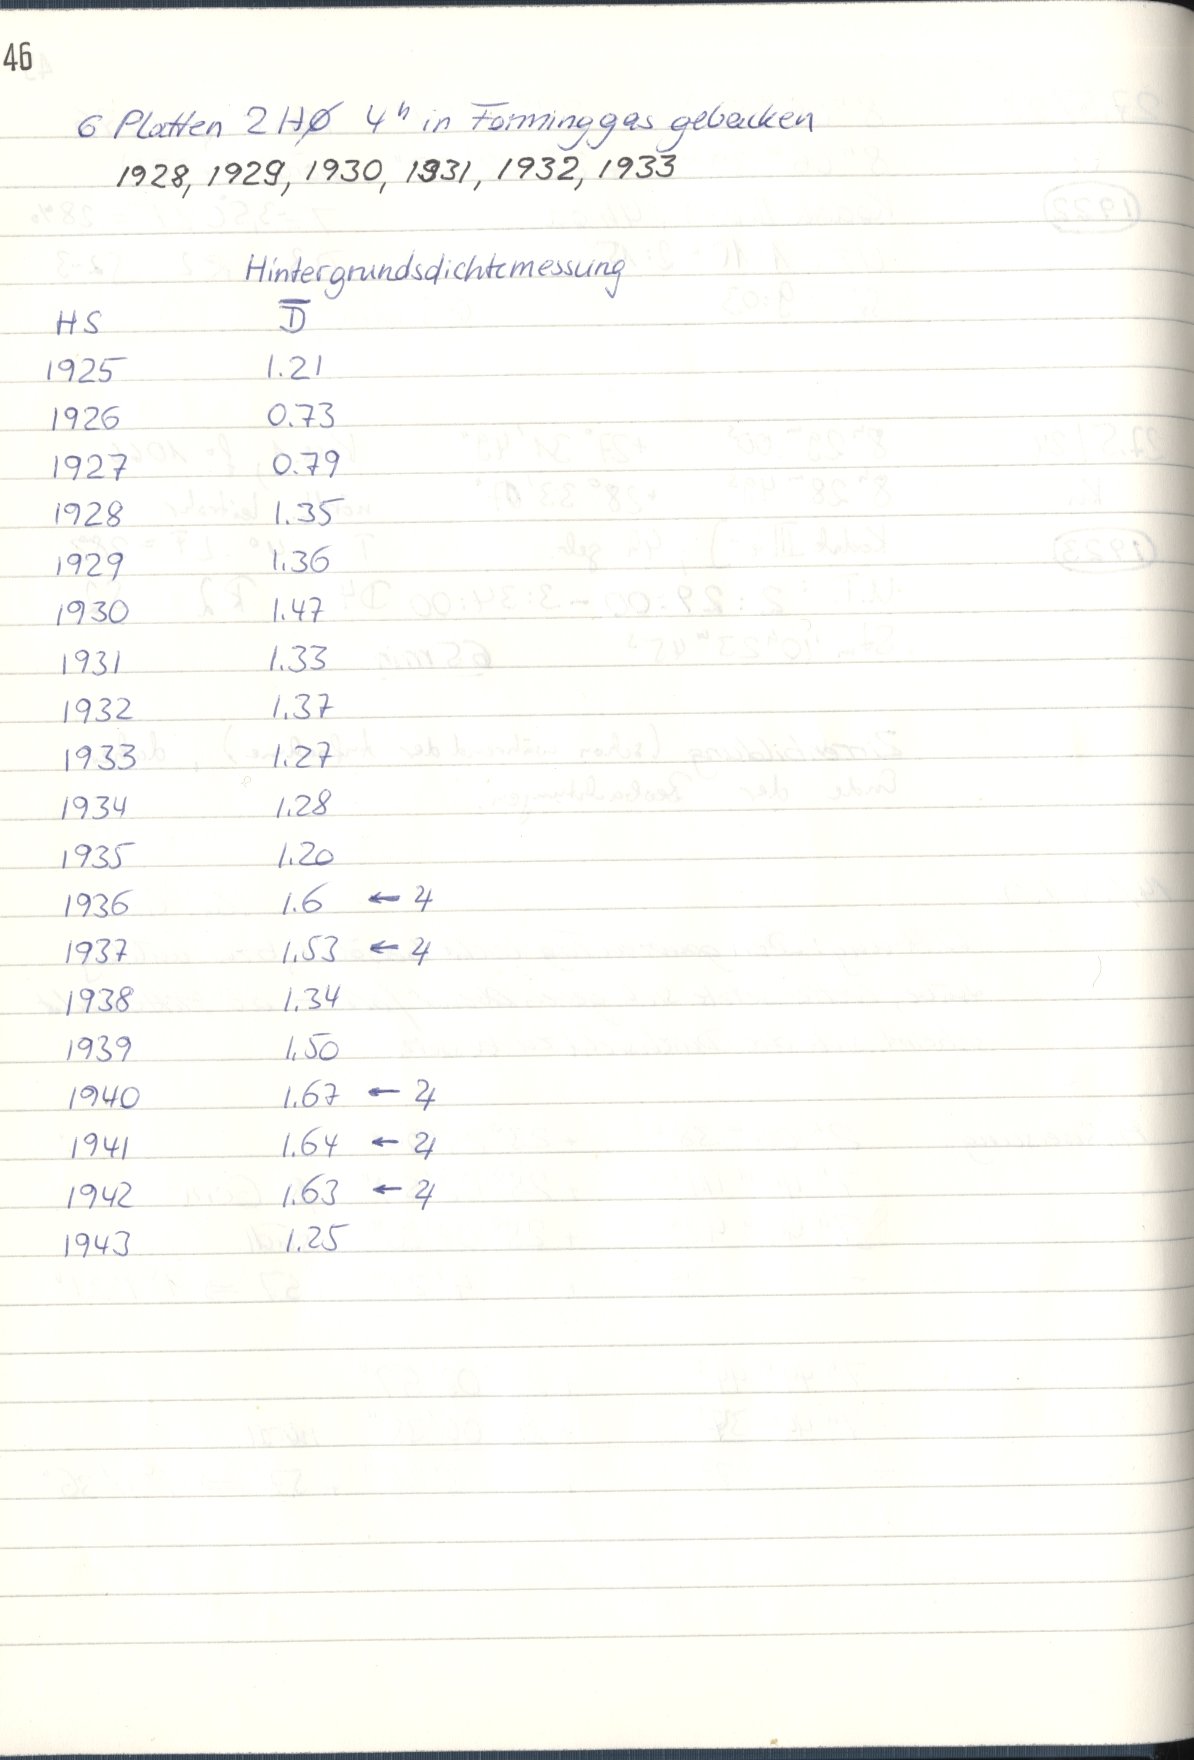 46
6 Platten 2HØ 4ʰ in Forminggas gebacken
1928, 1929, 1930, 1931, 1932, 1933
Hintergrundsdichtemessung
HS D̅
1925 1.21
1926 0.73
1927 0.79
1928 1.35
1929 1.36
1930 1.47
1931 1.33
1932 1.37
1933 1.27
1934 1.28
1935 1.20
1936 1.6 ← ♃
1937 1.53 ← ♃
1938 1.34
1939 1.50
1940 1.67 ← ♃
1941 1.64 ← ♃
1942 1.63 ← ♃
1943 1.25